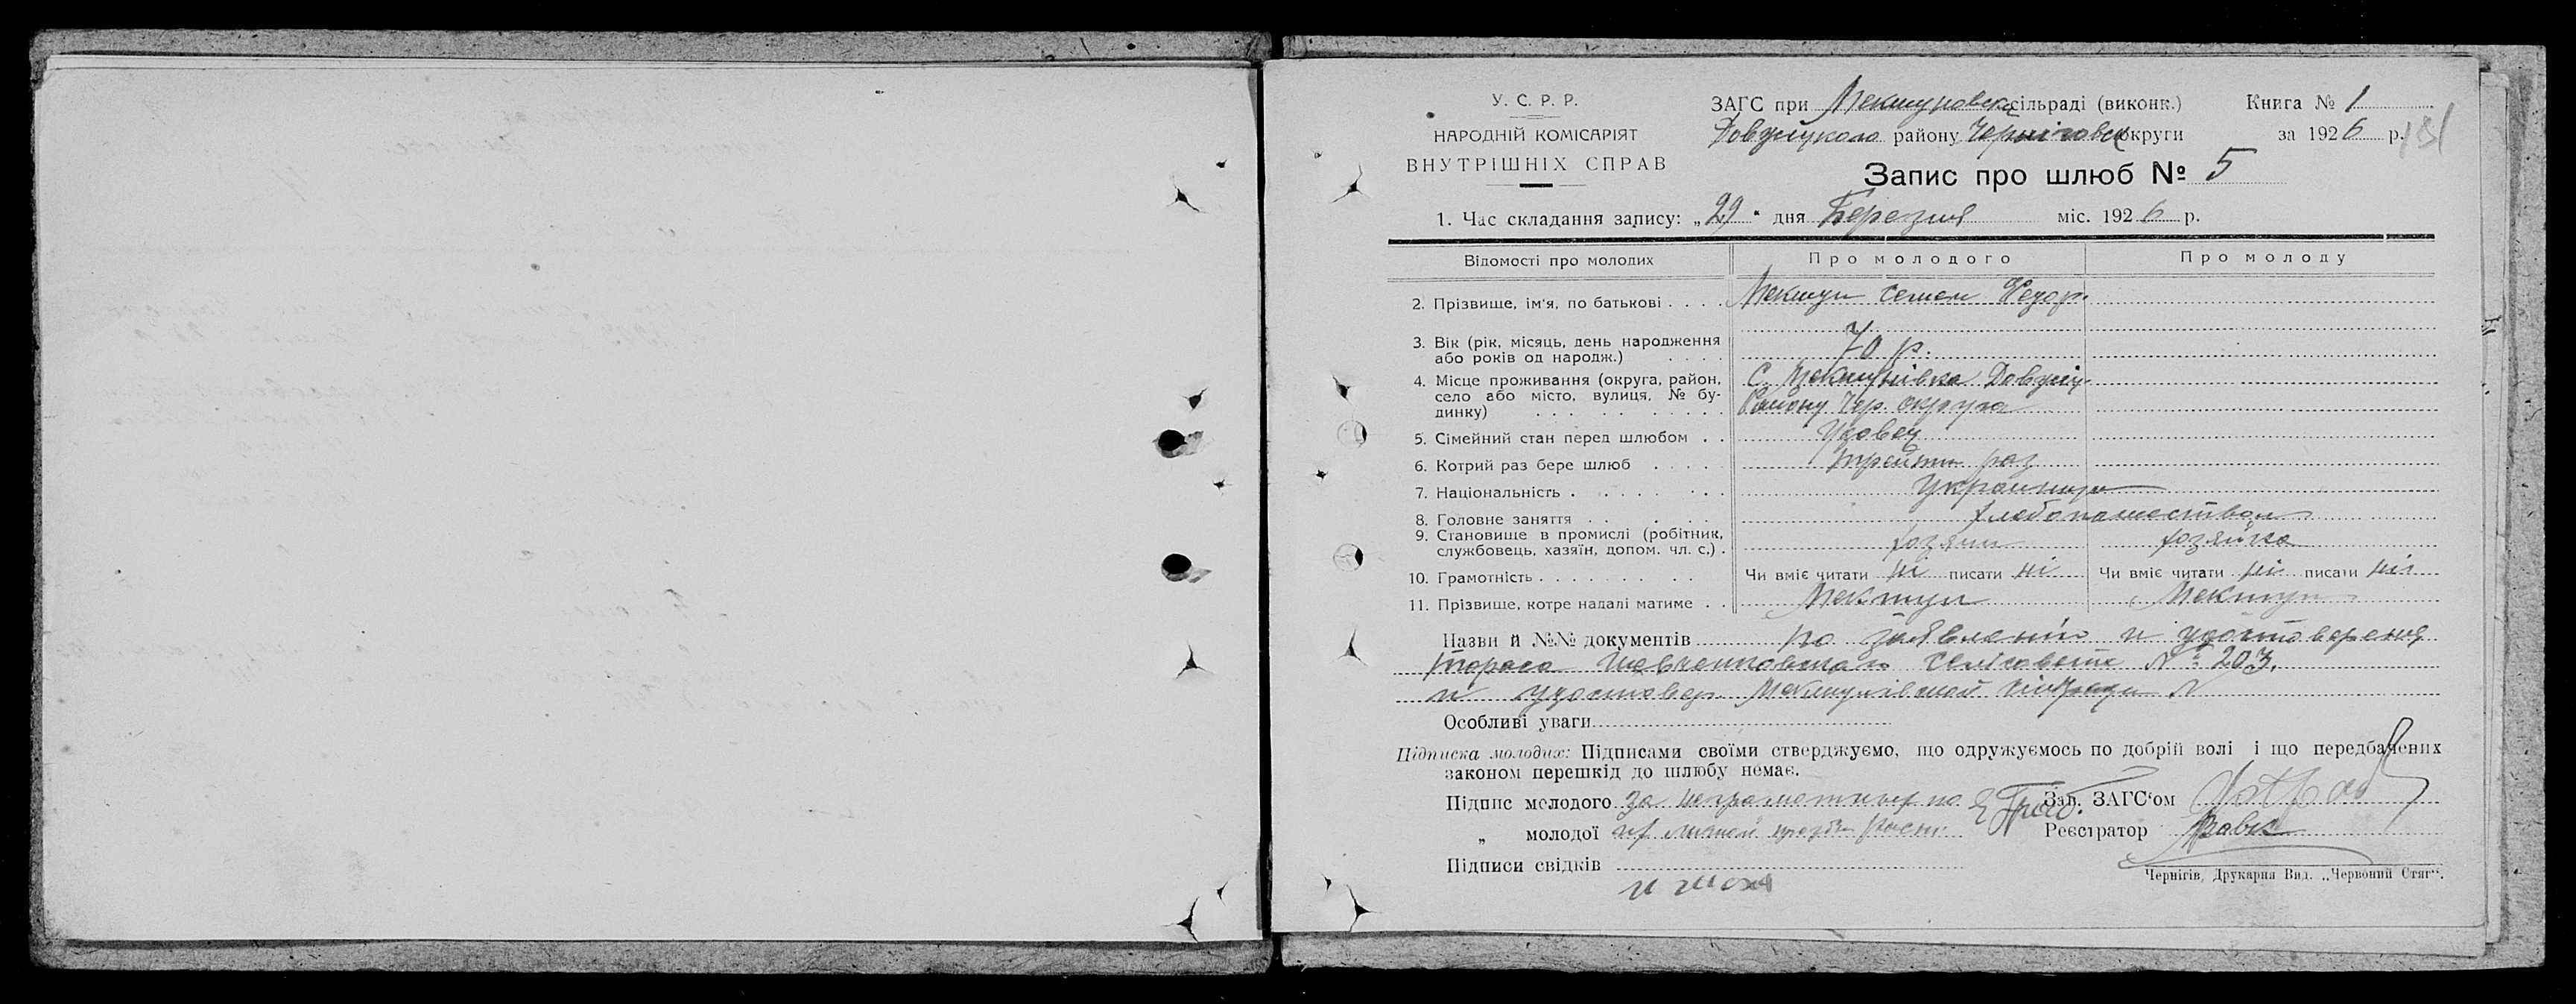 У. С. Р. Р.
НАРОДНІЙ КОМІСАРІЯТ
ВНУТРІШНІХ СПРАВ
ЗАГС при сільраді (виконк.) Книга № 1
району округи за 1926 р.
181
Запис про шлюб № 5
1. Час складання запису: „29" дня Березня міс. 1926 р.
Відомості про молодих Про молодого Про молоду
2. Прізвище, ім'я, по батькові . . . . Мекшун Семен Федор.
3. Вік (рік, місяць, день народження
або років од народж.) . . . . 70 р.
4. Місце проживання (округа, район, С. Мекшунівка
село або місто, вулиця, № бу- Району Чер. округа
динку) . . . . . . . . . .
5. Сімейний стан перед шлюбом . . Удовец
6. Котрий раз бере шлюб . . . . . раз
7. Національність . . . . . . . . Украинцы
8. Головне заняття . . . . . . хлебопашеством
9. Становище в промислі (робітник,
службовець, хазяїн, допом. чл. с.) . хозяин хозяйка
10. Грамотність . . . . . . . . . Чи вміє читати ні писати ні Чи вміє читати ні писати ні
11. Прізвище, котре надалі матиме . . Мекшун Мекшун
Назви й №№ документів по заявлению и удостоверения
Тараса Шевченковского № 203.
и удостовер. N
Особливі уваги
Підписка молодих: Підписами своїми стверджуємо, що одружуємось по добрій волі і що передбачених
законом перешкід до шлюбу немає.
Підпис молодого за неграмотных по Зав. ЗАГС'ом
„ молодої их личной Реєстратор
Підписи свідків
Чернігів, Друкарня Вид. „Червоний Стяг".